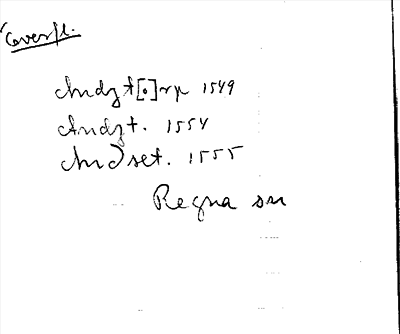 Coverfl.
Andzt[.]rp 1549
Andzt. 1554
Andset. 1555
Regna sn